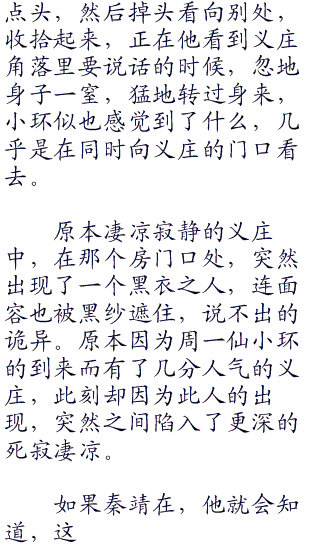 点头，然后掉头看向别处，
收拾起来，正在他看到义庄
角落里要说话的时候，忽地
身子一窒，猛地转过身来，
小环似也感觉到了什么，几
乎是在同时向义庄的门口看
去。
原本凄凉寂静的义庄
中，在那个房门口处，突然
出现了一个黑衣之人，连面
容也被黑纱遮住，说不出的
诡异。原本因为周一仙小环
的到来而有了几分人气的义
庄，此刻却因为此人的出
现，突然之间陷入了更深的
死寂凄凉。
如果秦靖在，他就会知
道，这